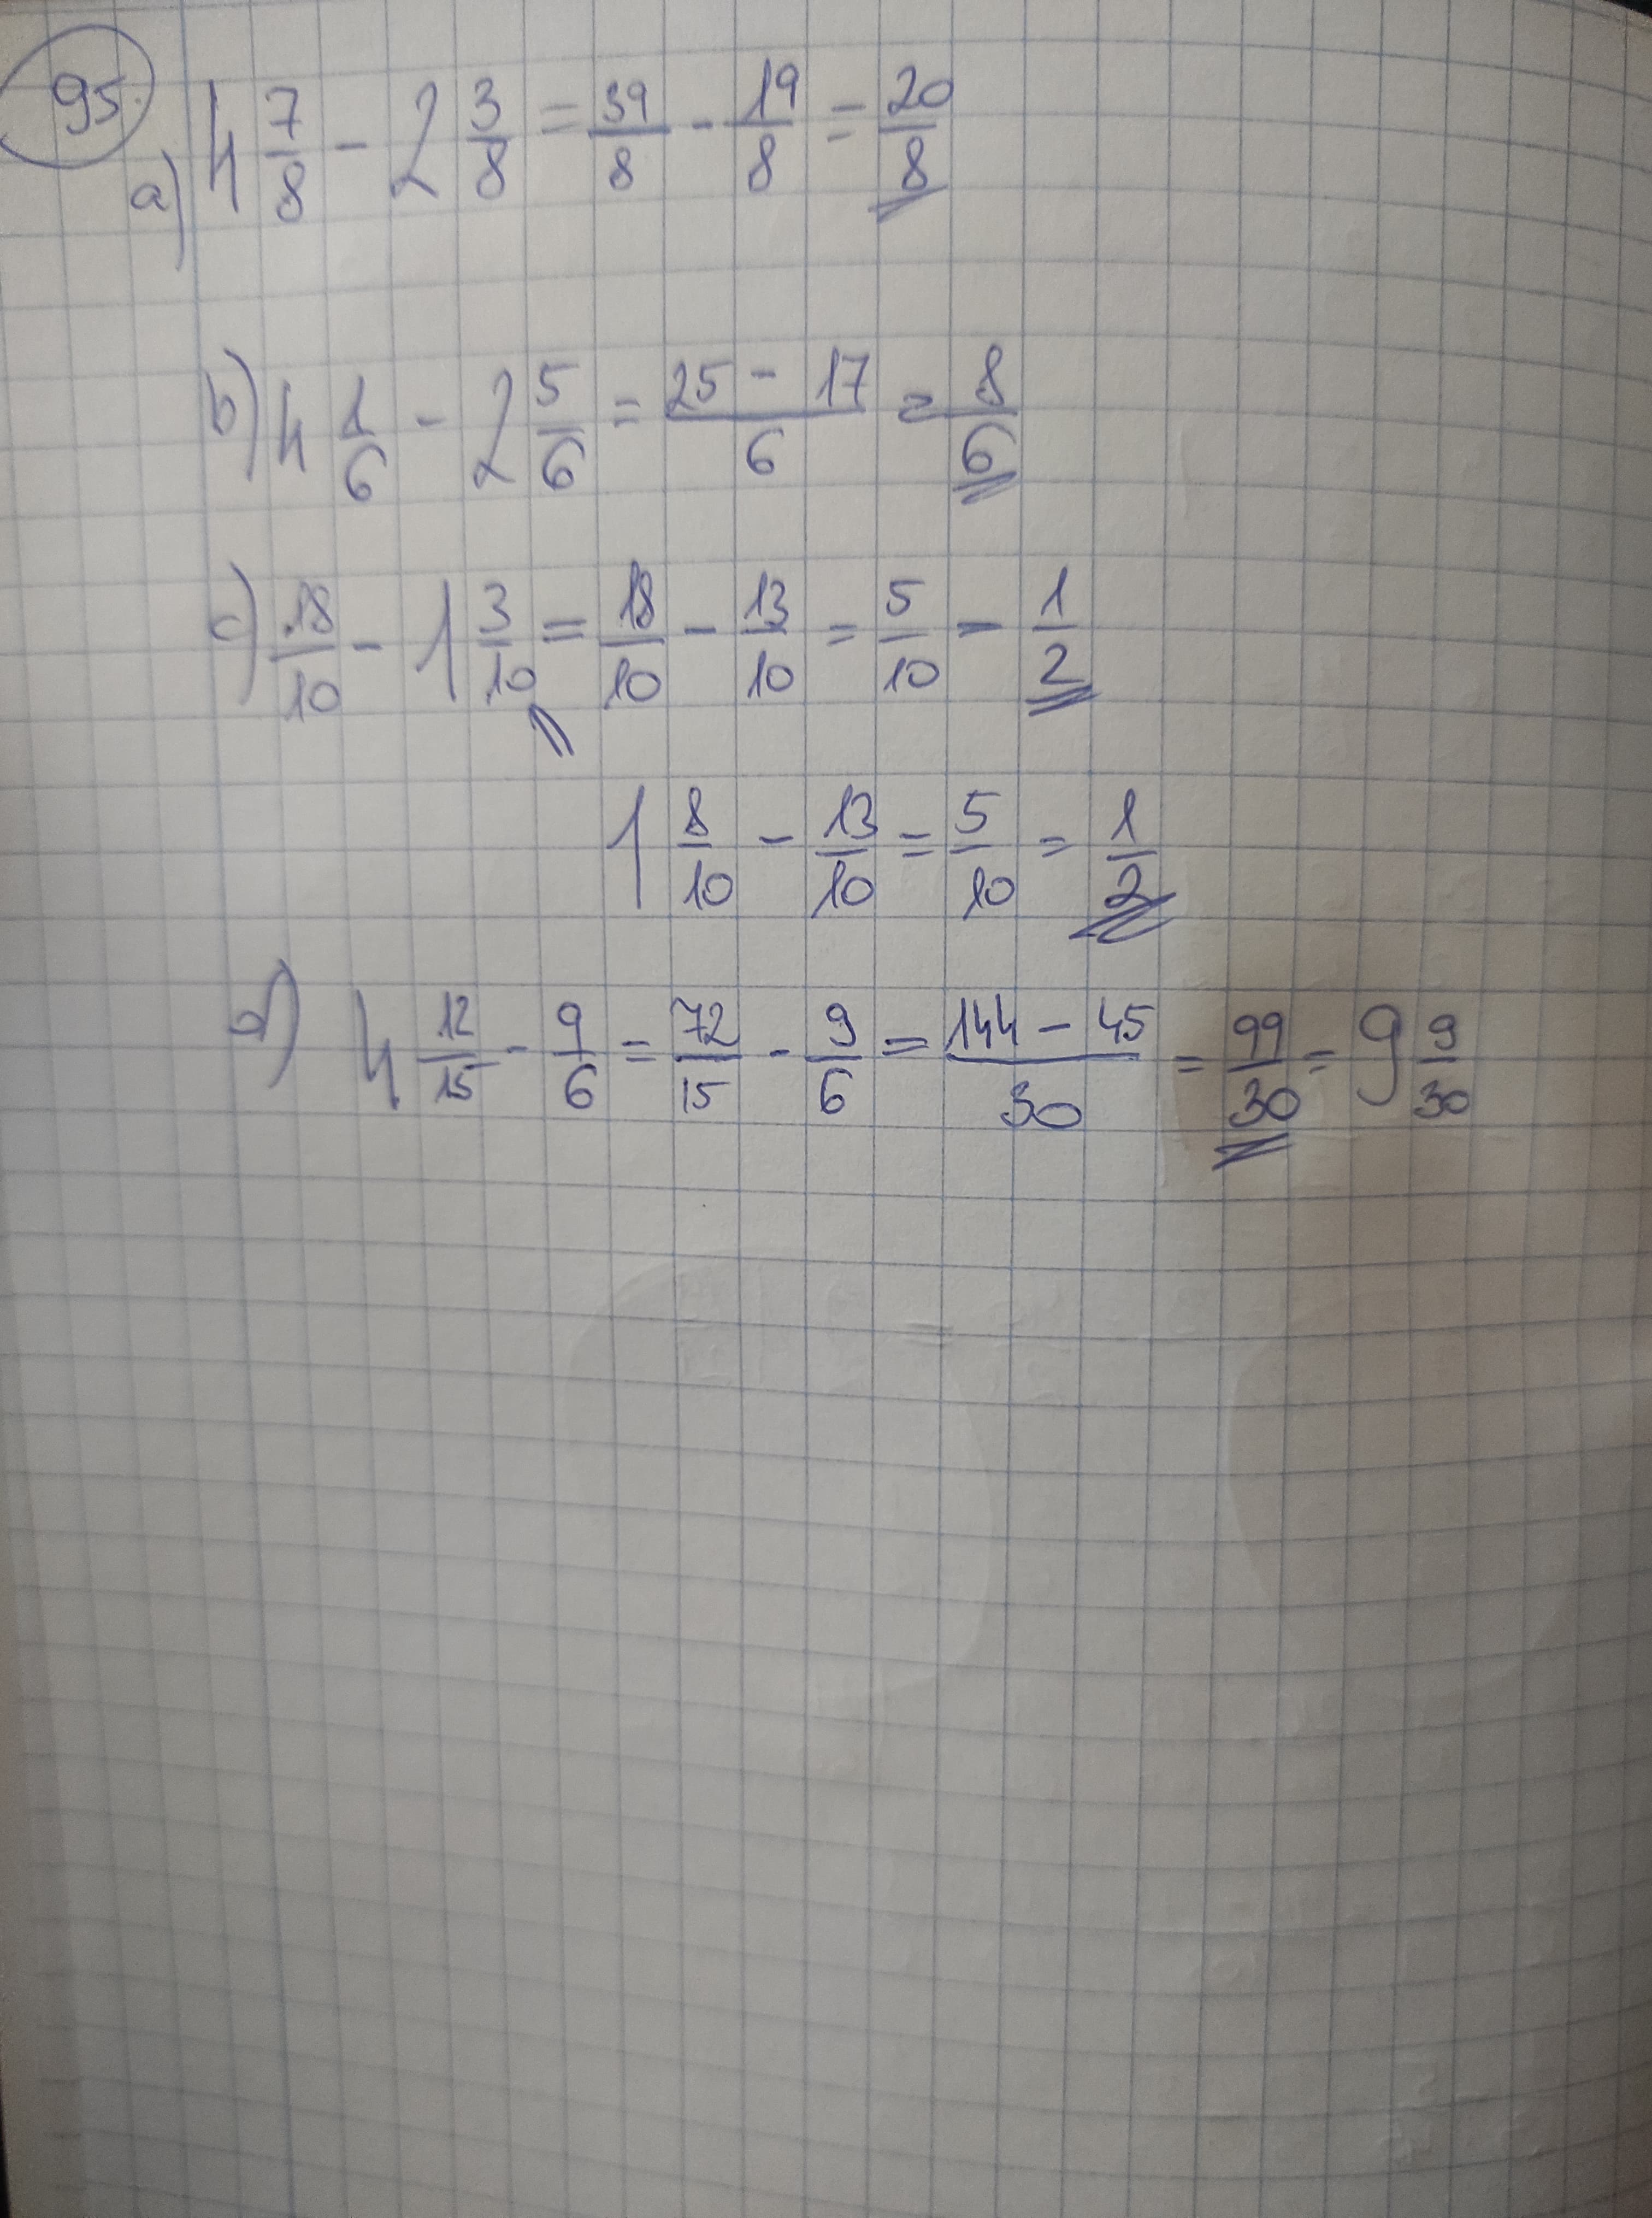 95.
a) 4 7/8 - 2 3/8 = 39/8 - 19/8 = 20/8
b) 4 1/6 - 2 5/6 = (25 - 17)/6 = 8/6
c) 18/10 - 1 3/10 = 18/10 - 13/10 = 5/10 = 1/2
1 8/10 - 13/10 = 5/10 = 1/2
d) 4 12/15 - 9/6 = 72/15 - 9/6 = (144 - 45)/30 = 99/30 = 9 9/30